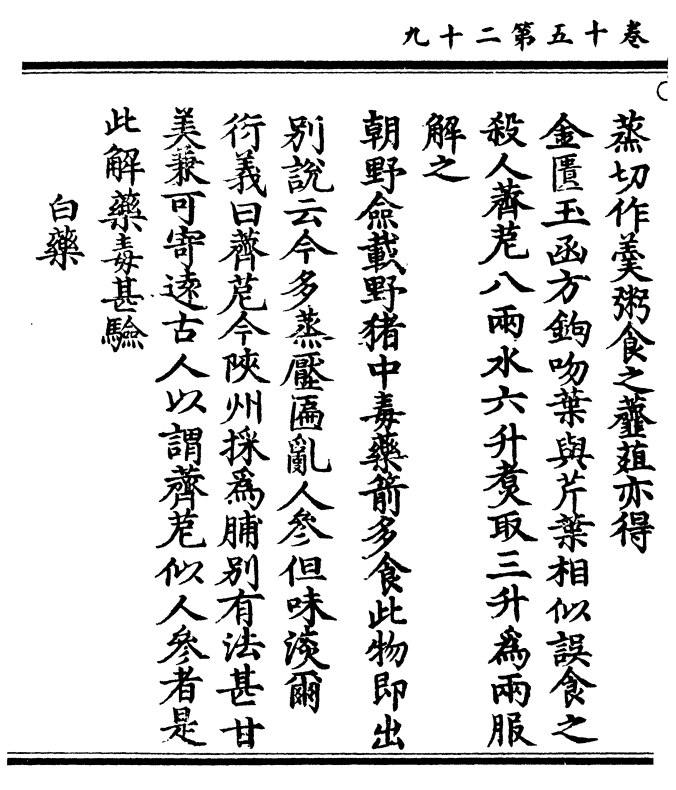 卷十五第二十九
蒸切作羹粥食之虀葅亦得
金匱玉函方鉤吻葉與芹葉相似誤食之
殺人薺苨八兩水六升煑取三升爲兩服
解之
朝野僉載野猪中毒藥箭多食此物即出
別說云今多蒸壓匾亂人參但味淡爾
衍義曰薺苨今陝州採爲脯別有法甚甘
美兼可寄遠古人以謂薺苨似人參者是
此解藥毒甚驗
白藥